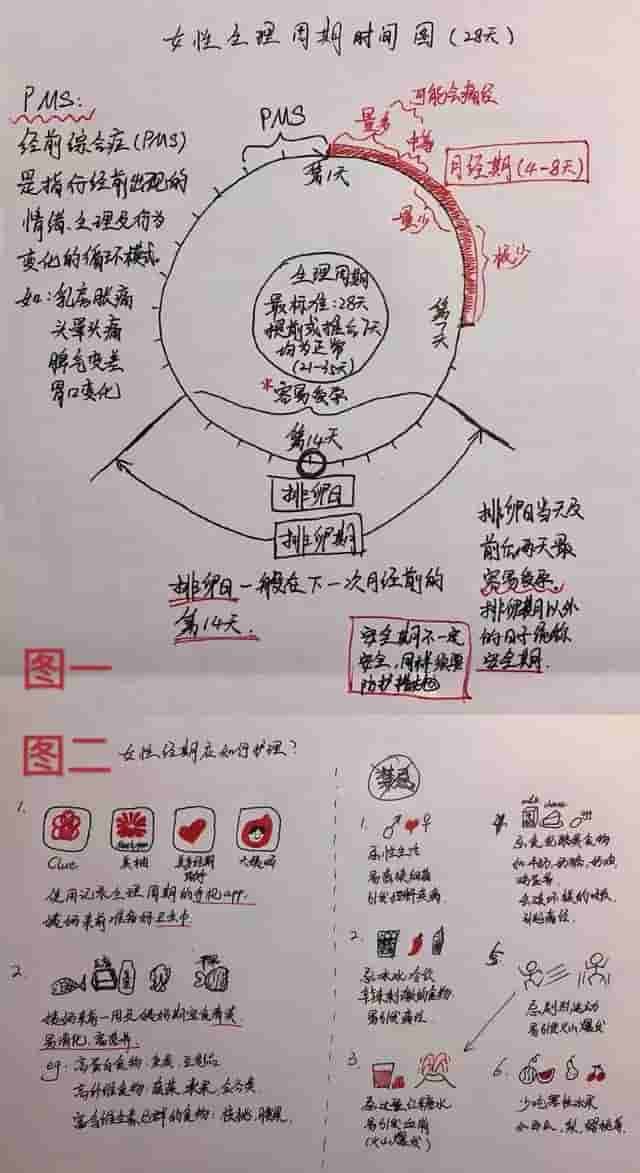 女性生理周期时间图(28天)
PMS:
经前综合症(PMS)
是指行经前出现的
情绪、生理及行为
变化的循环模式.
如:乳房胀痛
头晕头痛
脾气变差
胃口变化
PMS
第1天
量多
可能会痛经
中等
月经期(4-8天)
量少
极少
第7天
生理周期
最标准:28天
提前或推后7天
均为正常
(21-35天)
*容易受孕
第14天
排卵日
排卵期
排卵日一般在下一次月经前的
第14天.
排卵日当天及
前后两天最
容易受孕.
排卵期以外
的日子统称
安全期.
安全期不一定
安全,同样须要
防护措施
图一
图二
女性经期应如何护理?
1.
Clue
美柚
大姨吗
使用记录生理周期的手机app.
姨妈来前准备好卫生巾
2.
姨妈来前一周及姨妈期宜食清淡、
易消化、富营养.
eg: 高蛋白食物:鱼类、豆制品
高纤维食物:蔬菜、水果、全谷类
禁忌
1.
忌:性生活
易感染细菌
引发妇科疾病.
2.
忌冰水冷饮
辛辣刺激的食物
易引发痛经.
3.
忌过量红糖水
易引发血崩
(火山爆发)
4.
milk
cheese
如牛奶、奶酪、奶油
鸡蛋等.
引起痛经.
5
忌剧烈运动
易引发火山爆发
6.
少吃寒性水果
如西瓜、梨、樱桃等.